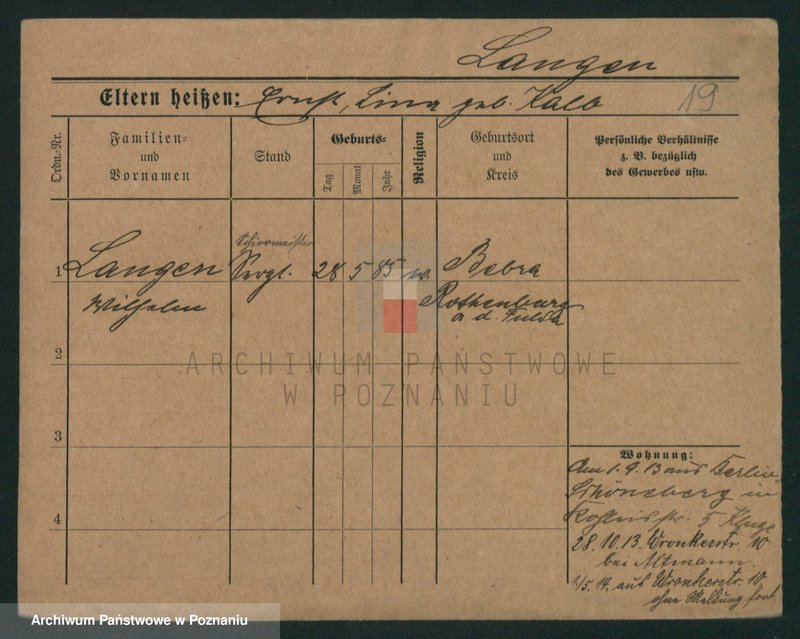 Langen
Eltern heißen: Ernst, Lina geb. Kalb 19
Ordn.-Nr.
Familien-
und
Vornamen
Stand
Geburts-
Tag
Monat
Jahr
Religion
Geburtsort
und
Kreis
Persönliche Verhältnisse
z. B. bezüglich
des Gewerbes usw.
Schirrmeister
1 Langen Sergt. 28 5 85 w. Bebra
Wilhelm Rothenburg
a. d. Fulda
2
ARCHIWUM PAŃSTWOWE
W POZNANIU
3
Wohnung:
Am 1.9.13 aus Berlin
Schöneberg in
5 Kluge
4
28.10.13. Wronkerstr. 10
bei Altmann.
1/5.14. aus Wronkerstr. 10
ohne Meldung fort.
Archiwum Państwowe w Poznaniu